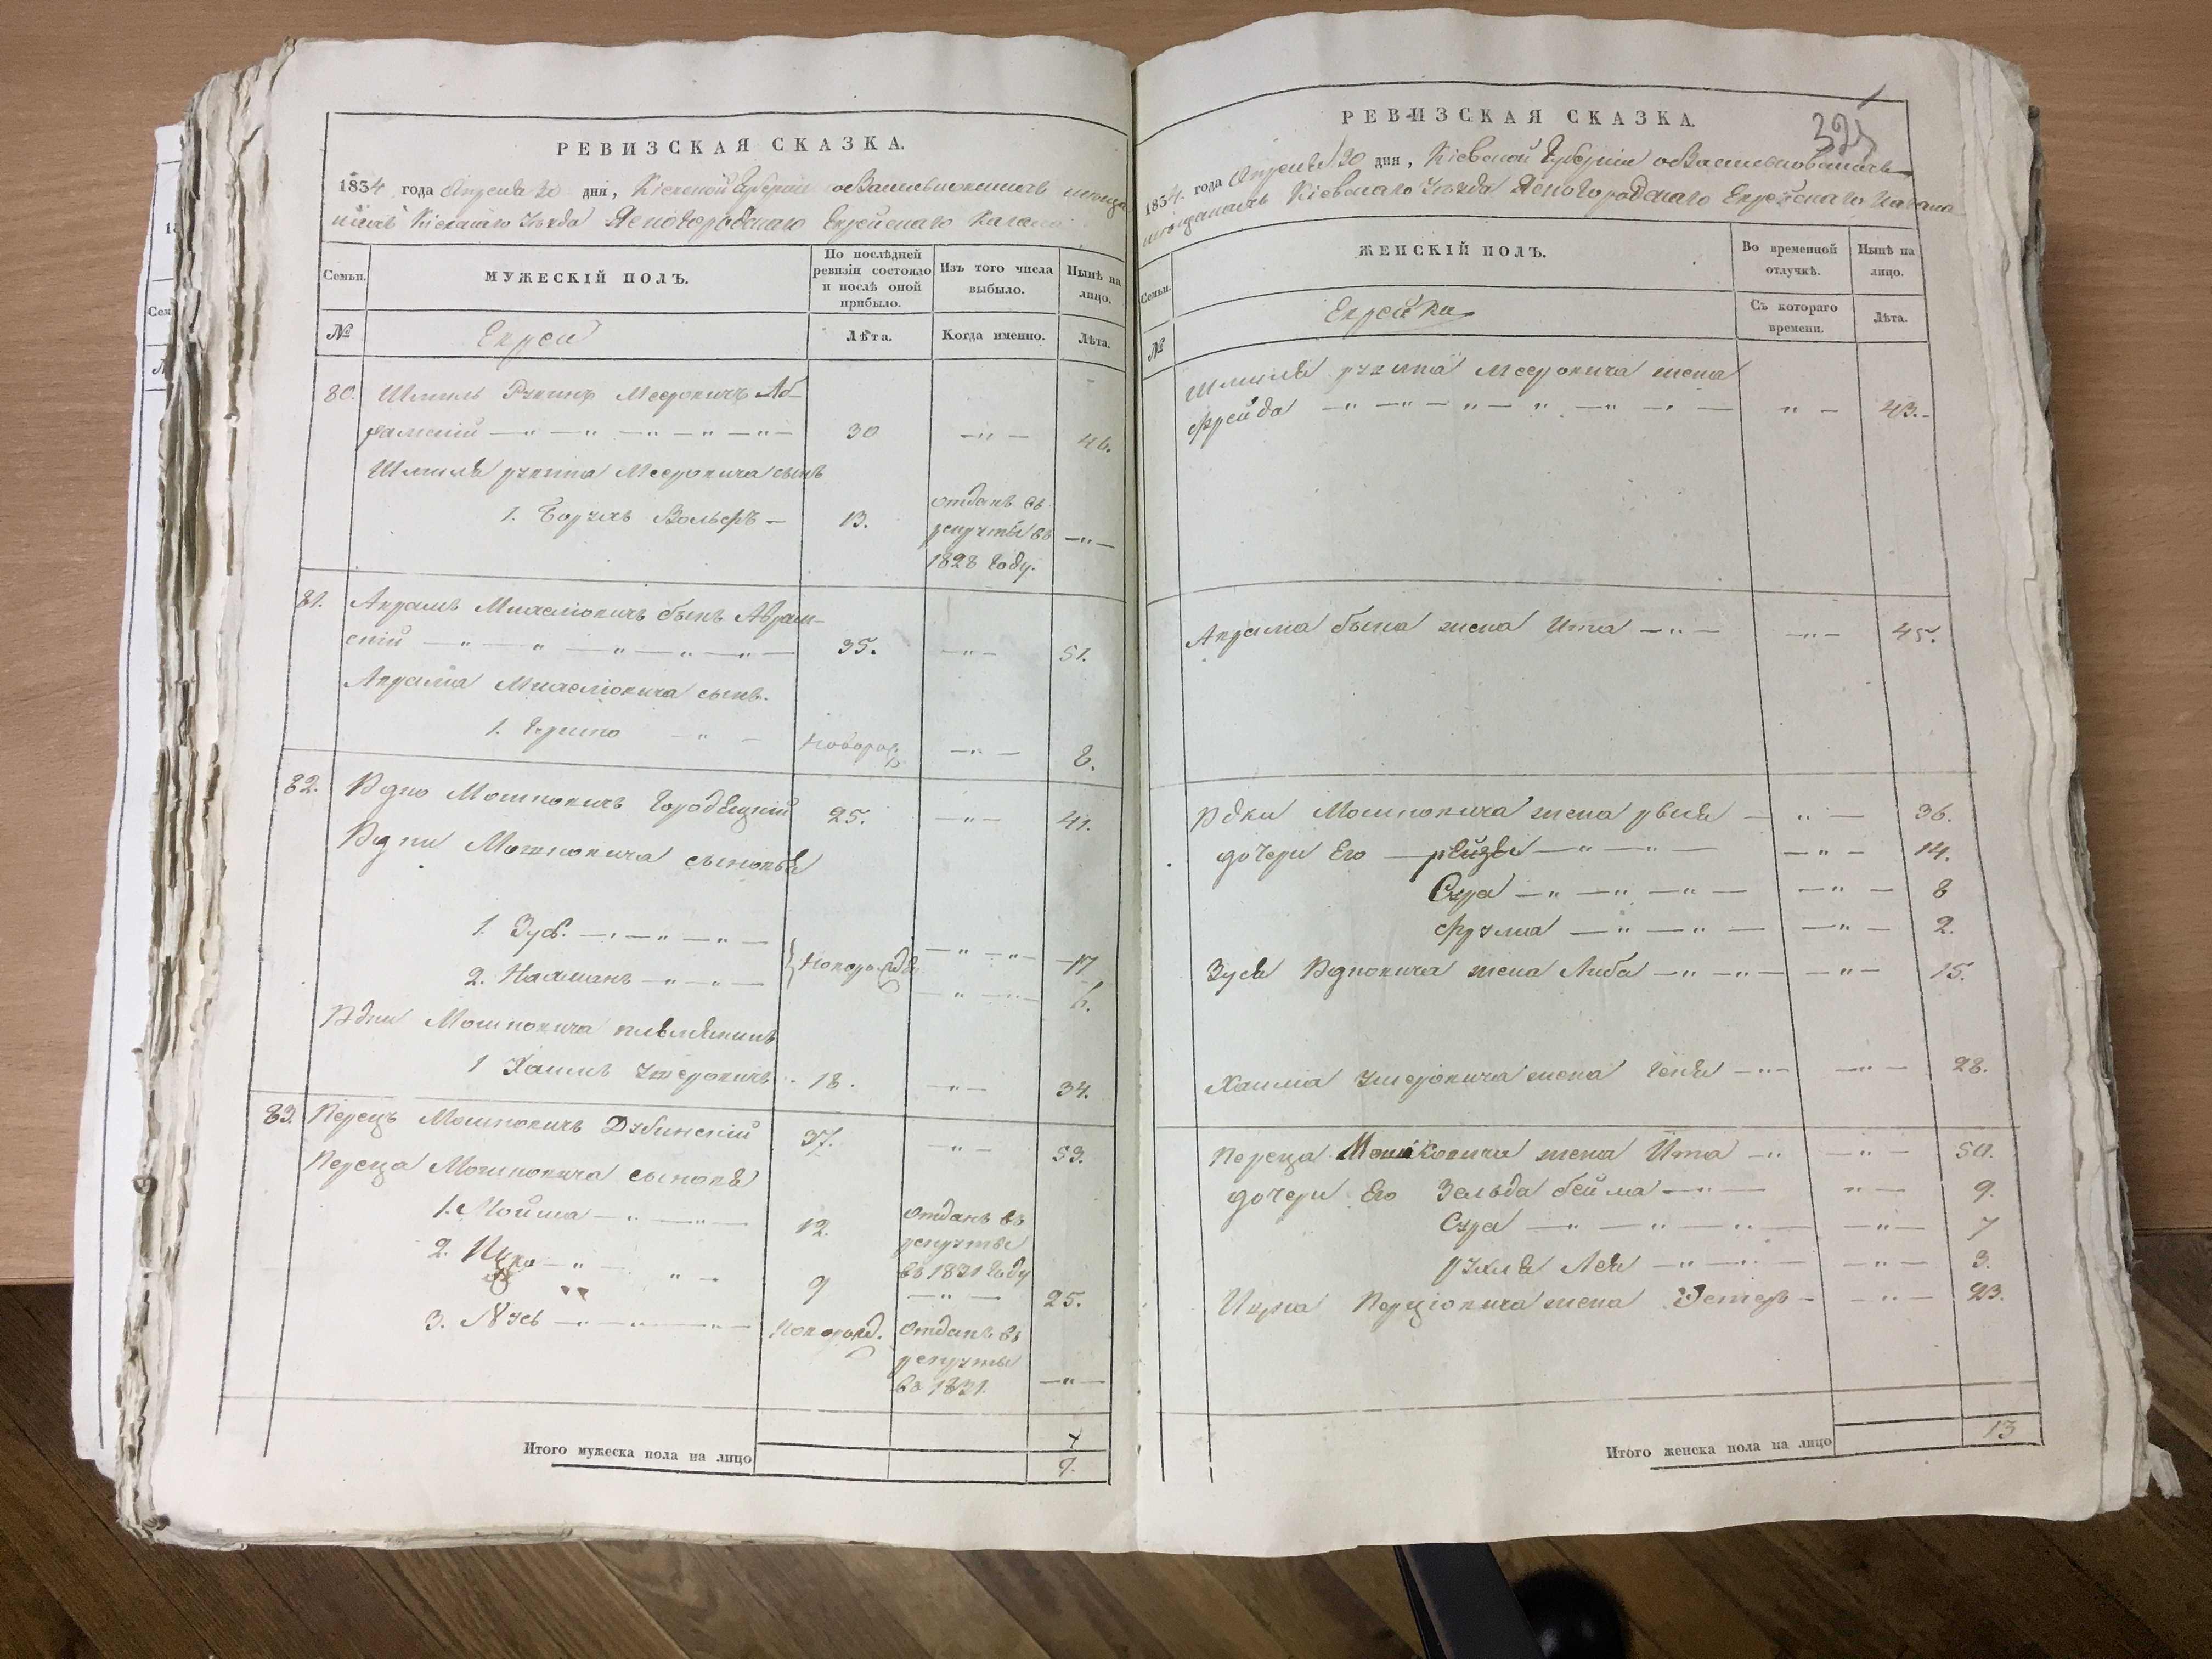 РЕВИЗСКАЯ СКАЗКА.
1834 года Апреля 20 дня, Кіевской Губерніи
Кіевскаго Уезда Еврейскаго Кагала
Семьи.
МУЖЕСКІЙ ПОЛЪ.
По послѣдней ревизіи состояло и послѣ оной прибыло.
Изъ того числа выбыло.
Нынѣ на лицо.
№
Евреи
Лѣта.
Когда именно.
Лѣта.
80. Шмиль Рувинъ Мееровичъ Аб-
рамскій 30 46.
Шмиля рувина Мееровича сынъ
1. Борухъ Вольфъ 13. отданъ въ
рекруты въ
1828 Году.
81. Аврамъ Быкъ Аврам-
скій 35. 51.
Аврама сынъ.
1. новорож 8.
82. Мошковичъ Городецкій 25. 41.
Мошковича сыновья
1. Зусь. 17
2. Нахманъ новорожд 6.
Мошковича племянникъ
1 Хаимъ 18. 34.
83. Перецъ Мошковичъ Дубинскій 37. 53.
Переца Мошковича сыновья
1. Мойша 12. отданъ въ
рекруты
въ 1831 Году
2. 9 25.
3. новорожд. отданъ въ
рекруты
въ 1831.
Итого мужеска пола на лицо 9.
РЕВИЗСКАЯ СКАЗКА.
1834. года Апреля 20 дня, Кіевской Губерніи
Кіевскаго Уезда Еврейскаго Кагала
Семьи.
ЖЕНСКІЙ ПОЛЪ.
Во временной отлучкѣ.
Нынѣ на лицо.
№
Еврейки
Съ котораго времени.
Лѣта.
Шмиля рувина Мееровича жена
Фрейда 43.
Аврама быка жена Ита 45.
Мошковича жена 36.
дочери Его рейзя 14.
Сура 8
Фрума 2.
Зуся жена Либа 15.
Хаима жена Геня 28.
Переца Мошковича жена Ита 50.
дочери Его Зельда бейма 9.
Сура 7
рухля Лея 3.
жена Эстеръ 23.
Итого женска пола на лицо 13